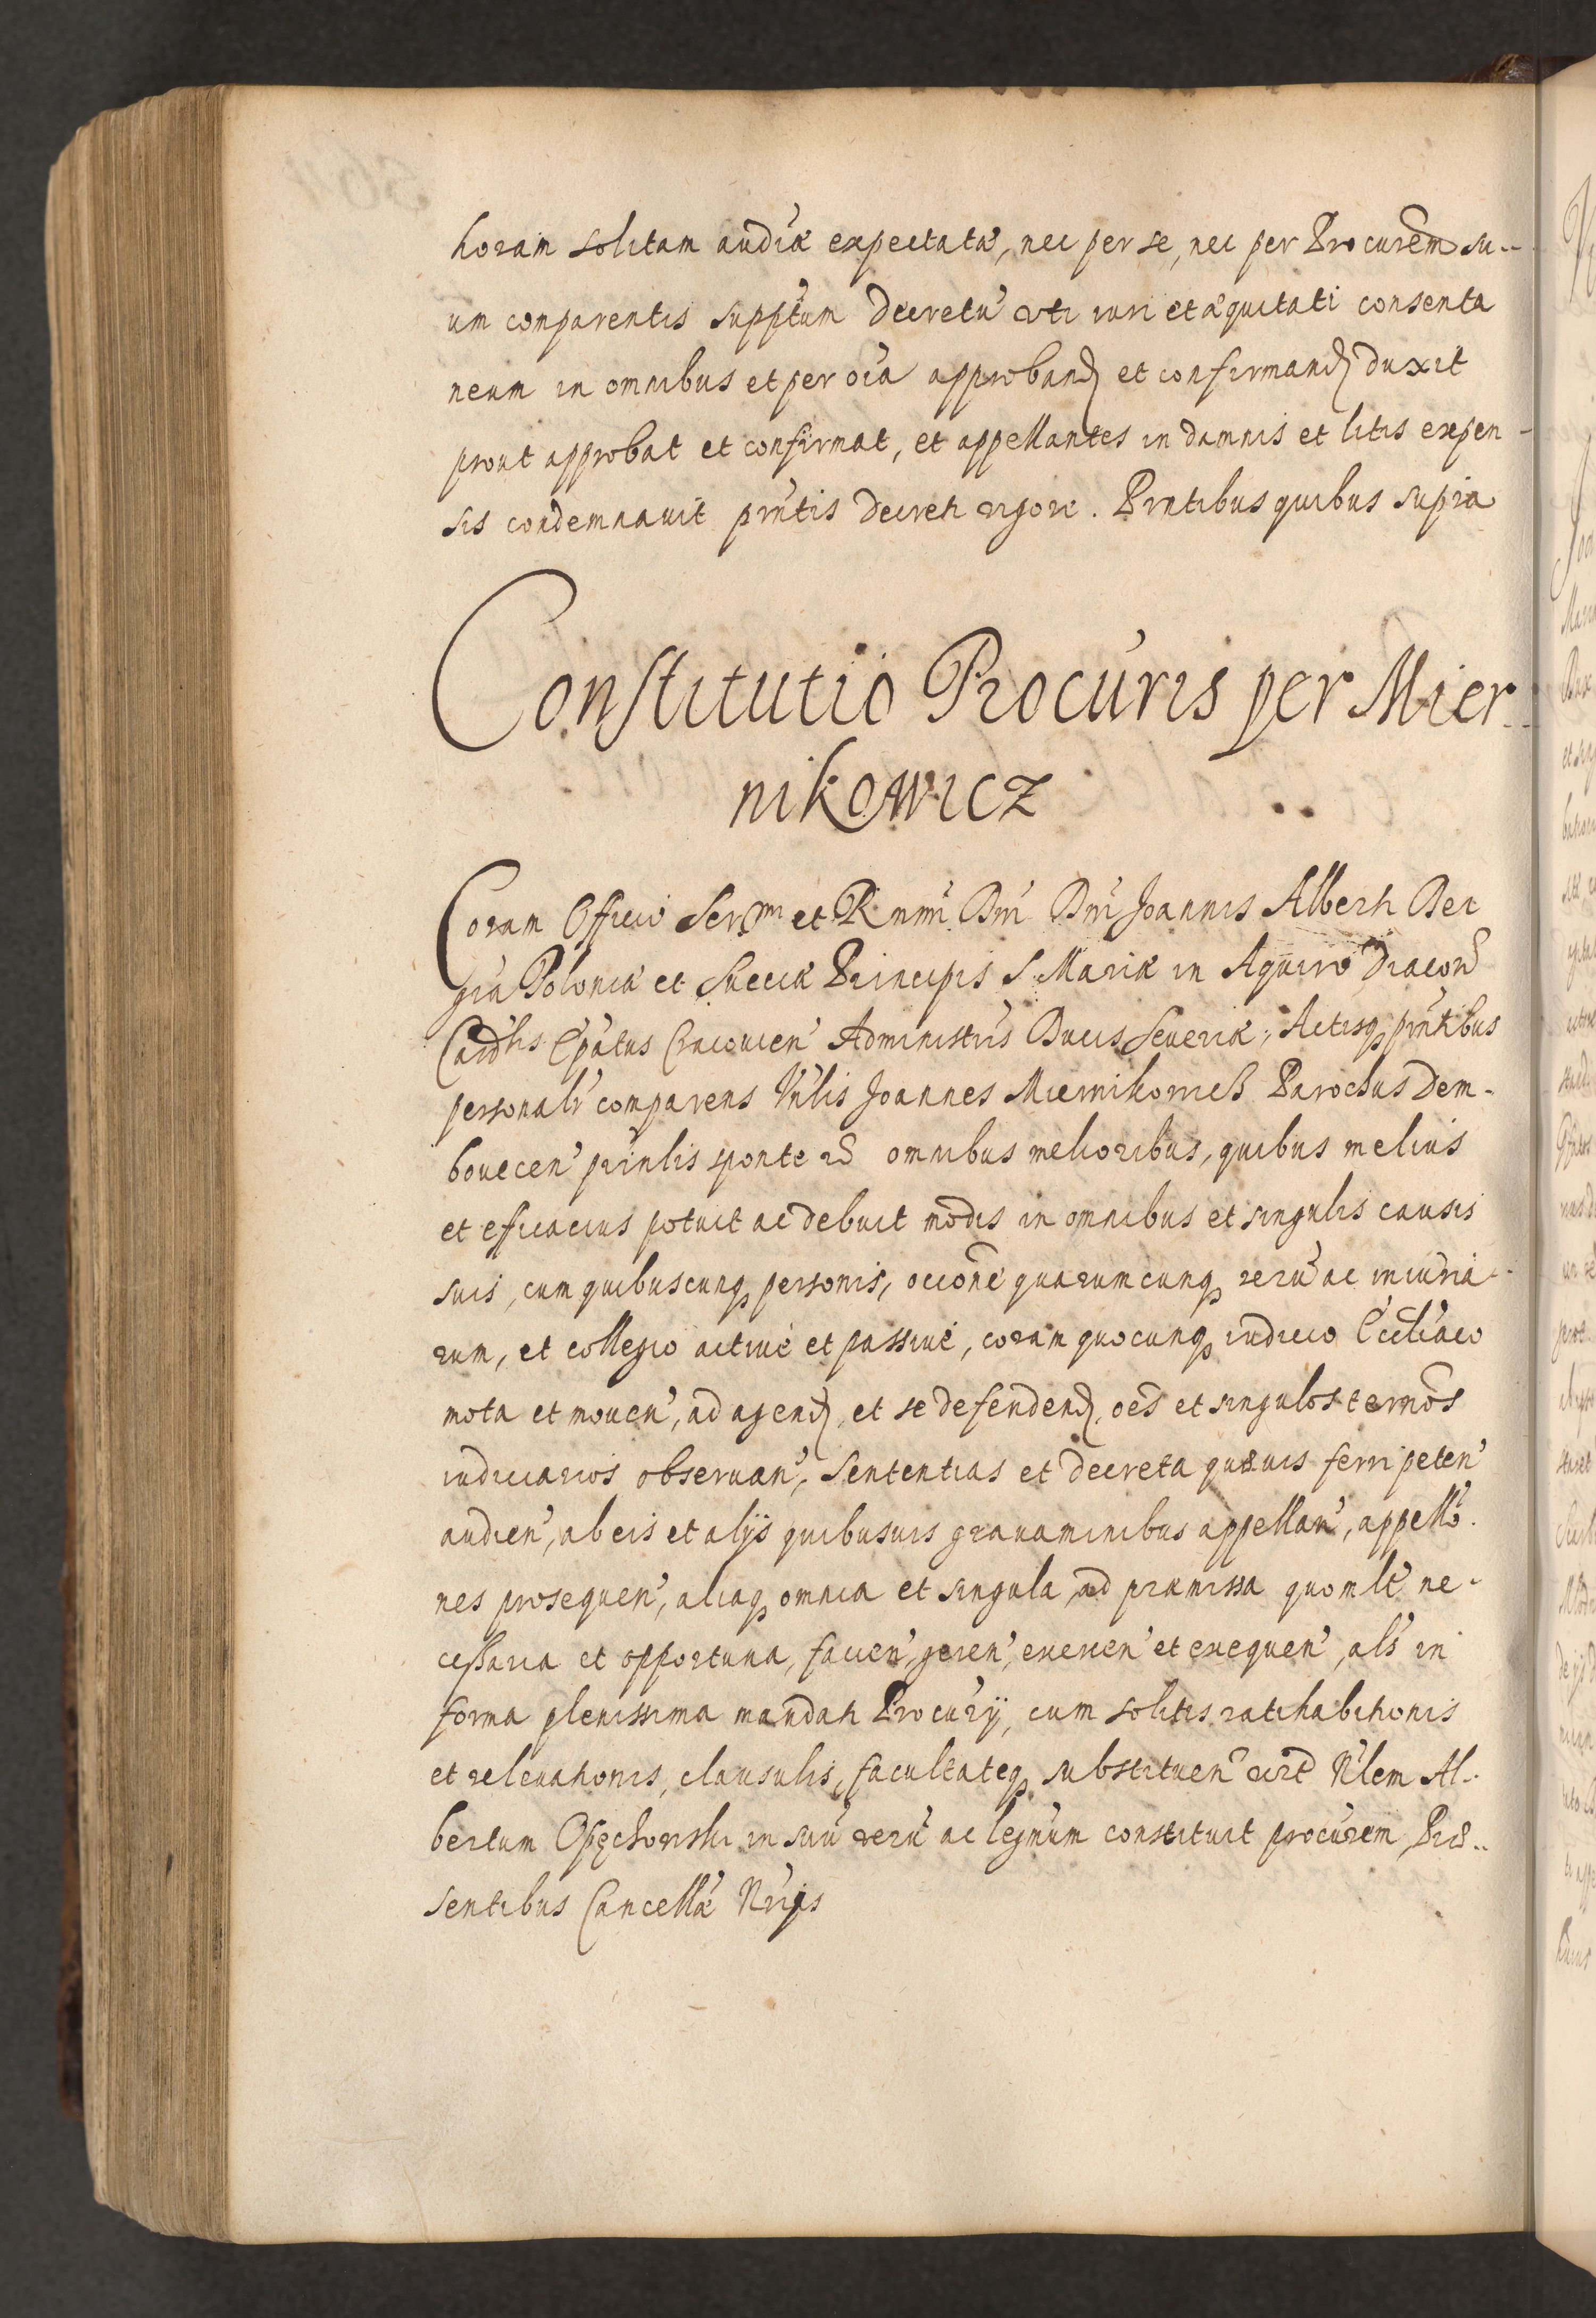 horam solitam audiæ expectatæ, nec per se, nec per Procurem su-
um comparentis supptum Decretu uti iuri et æquitati consenta
neum in omnibus et per oia approband et confirmand duxit
prout approbat et confirmat, et appellantes in damnis et litis expen-
sis condemnavit pntis Decreti vigore. Pntibus quibus supra
Constitutio Procuris per Mier-
nikowicz
Coram Officio Sermi et Rnmi Dni Dni Joannis Alberti Dei
gra Poloniæ et Sueciæ Principis S. Mariæ in Aquiro Diacon
Cardlis Epatus Cracovien Administris Ducis Severiæ, Actisq pntibus
personalr comparens Vnlis Joannes Miernikowicz Parochus Dem-
bovecen prinlis sponte omnibus melioribus, quibus melius
et efficacius potuit ac debuit modis in omnibus et singulis causis
suis, cum quibuscunq personis, occone quarumcunq reru ac iniuria-
rum, et collegio active et passive, coram quocunq iudicio Eccliaco
mota et moven, ad agend, et se defendend, oes et singulos termos
iudiciarios observan, sententias et decreta quævis ferri peten
audien, ab eis et alijs quibusvis gravaminibus appellan, appello-
nes prosequen, aliaq omnia et singula ad præmissa quomlt ne-
cessaria et opportuna, facien, geren, exercen et exequen, als in
forma plenissima mandati Procurij, cum solitis ratihabitionis
et relevationis clausulis, facultateq substituen Nlem Al-
bertum Opęchowski in suu veru ac legnum constituit procurem, Præ-
sentibus Cancellæ Nrijs